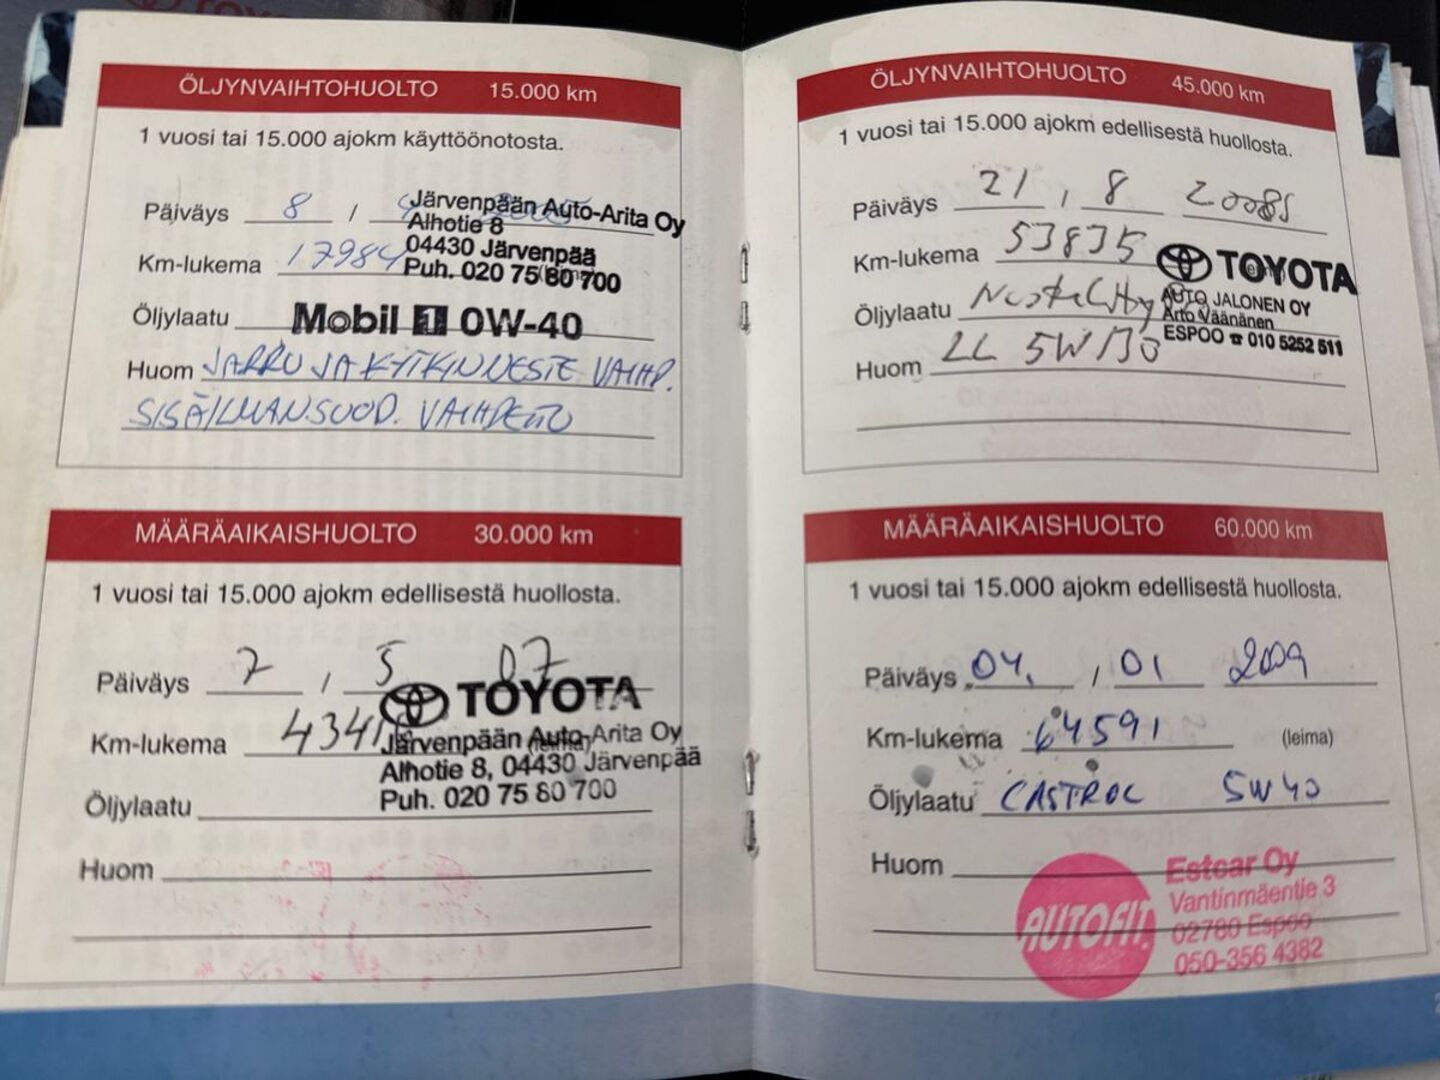 ÖLJYNVAIHTOHUOLTO 15.000 km
1 vuosi tai 15.000 ajokm käyttöönotosta.
Päiväys 8 /
Järvenpään Auto-Arita Oy
Alhotie 8
04430 Järvenpää
Puh. 020 75 80 700
Km-lukema 17984
Öljylaatu Mobil 1 0W-40
Huom JARRU JA KYTKINNESTE VAIHD.
SISÄILMANSUOD. VAIHDETTU
MÄÄRÄAIKAISHUOLTO 30.000 km
1 vuosi tai 15.000 ajokm edellisestä huollosta.
Päiväys 7 / 5 07
TOYOTA
Km-lukema
Järvenpään Auto-Arita Oy
Alhotie 8, 04430 Järvenpää
Puh. 020 75 80 700
Öljylaatu
Huom
ÖLJYNVAIHTOHUOLTO 45.000 km
1 vuosi tai 15.000 ajokm edellisestä huollosta.
Päiväys 21 / 8
Km-lukema 53835
TOYOTA
AUTO JALONEN OY
Arto Väänänen
ESPOO ☎ 010 5252 511
Öljylaatu
Huom LL 5W/30
MÄÄRÄAIKAISHUOLTO 60.000 km
1 vuosi tai 15.000 ajokm edellisestä huollosta.
Päiväys 04. / 01 2009
Km-lukema 64591 (leima)
Öljylaatu CASTROL 5W40
Huom
AUTOFIT
Estcar Oy
Vantinmäentie 3
02780 Espoo
050-356 4382